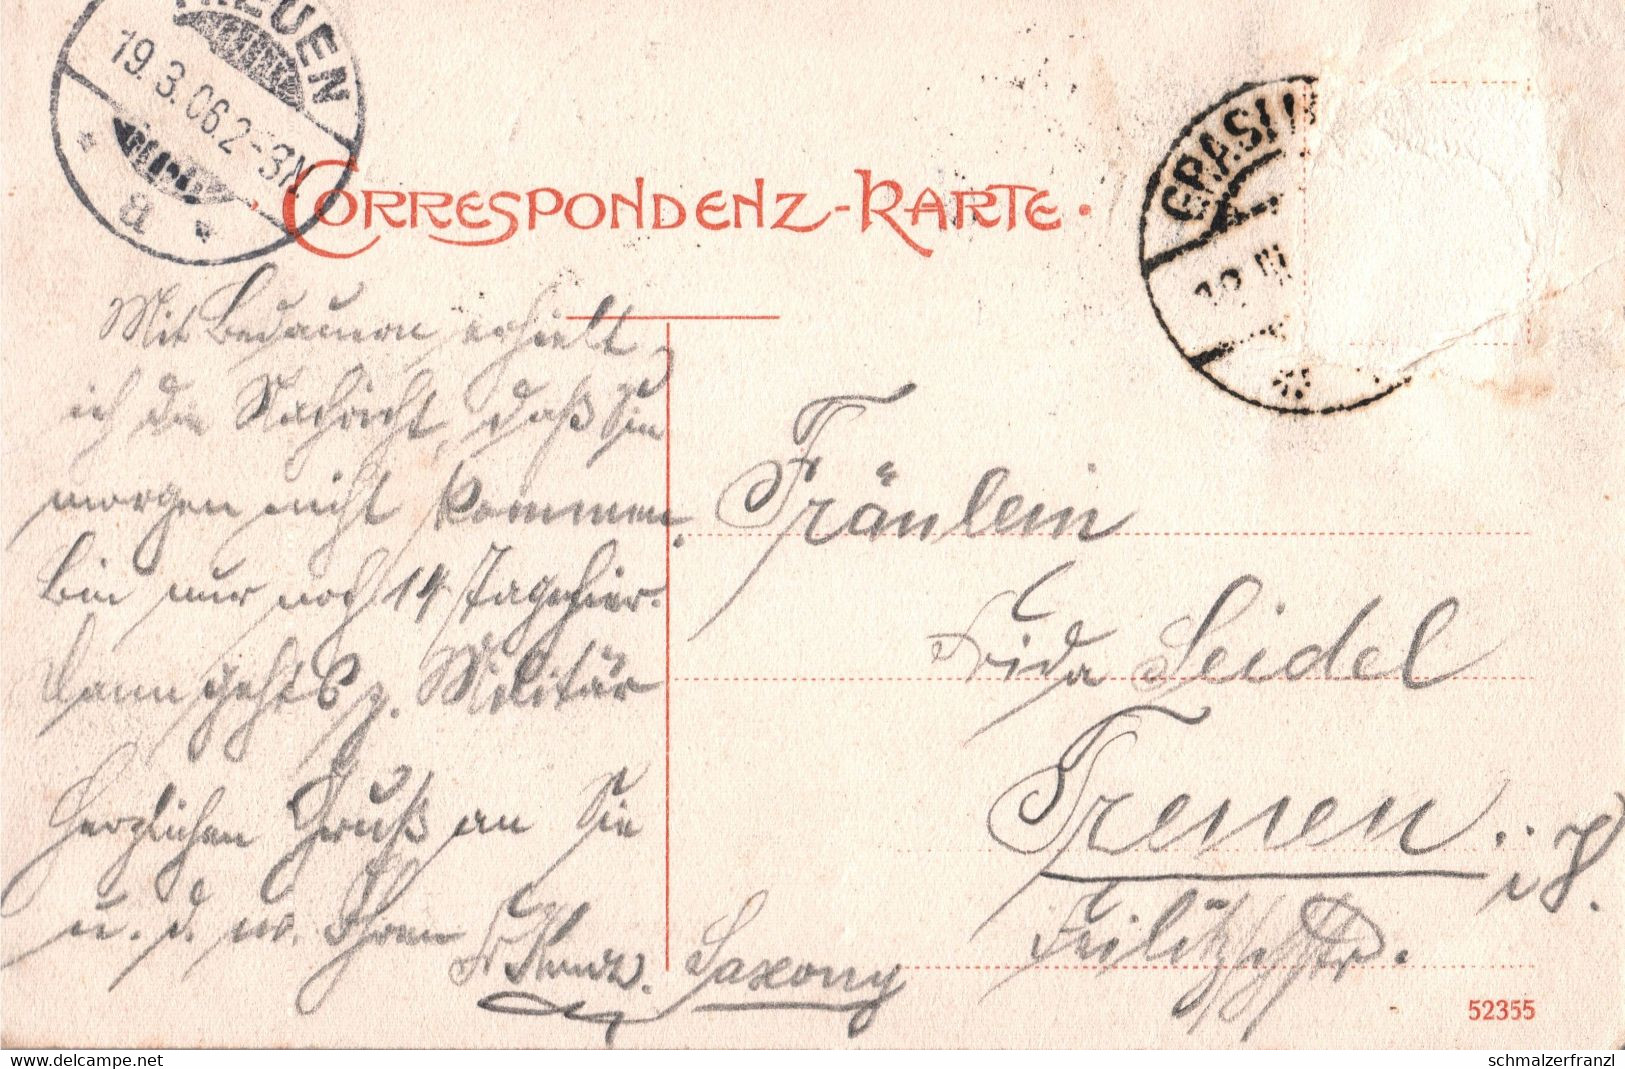 TREUEN
19.3.06.2-3N
* a *
GRASLI
19 III
CORRESPONDENZ-KARTE
Mit Bedauern erhielt
ich die Nachricht, daß Sie
morgen nicht kommen.
Bin nur noch 14 Tage hier.
Dann gehts z. Militär
Herzlichen Gruß an Sie
u. d. w. Ihren
Saxony
Fräulein
Frida Seidel
Treuen i. V.
Feilitzschstr.
52355
delcampe.net
schmalzerfranzl